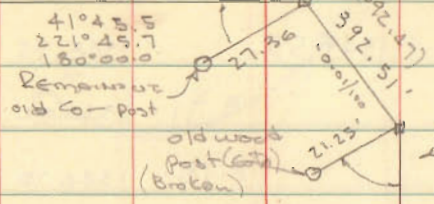 41°45.5
221°45.7
180°00.0
REMAINS OF
old Co- post
27.36
392.47)
392.51'
0.01/100
21.25'
old wood
post
(Broken)